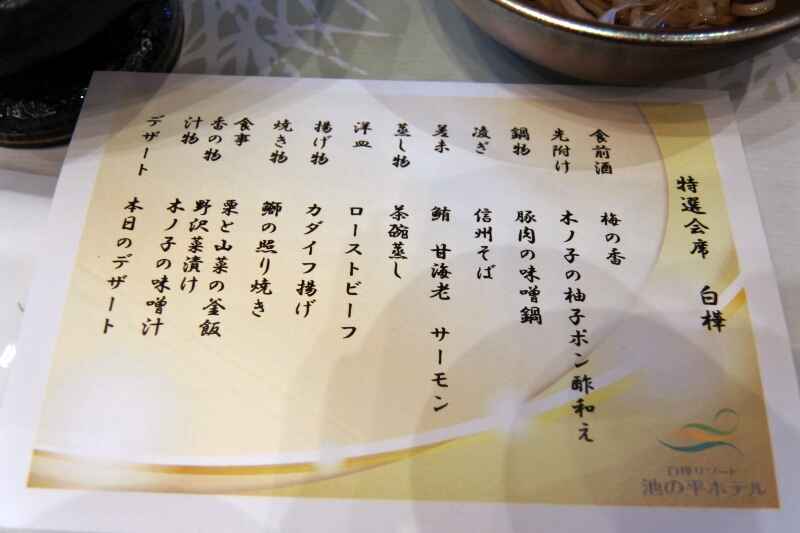 特選会席 白樺
食前酒 梅の香
先附け 木ノ子の柚子ポン酢和え
鍋物 豚肉の味噌鍋
凌ぎ 信州そば
差未 鮪 甘海老 サーモン
蒸し物 茶碗蒸し
洋皿 ローストビーフ
揚げ物 カダイフ揚げ
焼き物 鰤の照り焼き
食事 栗と山菜の釜飯
香の物 野沢菜漬け
汁物 木ノ子の味噌汁
デザート 本日のデザート
白樺リゾート
池の平ホテル